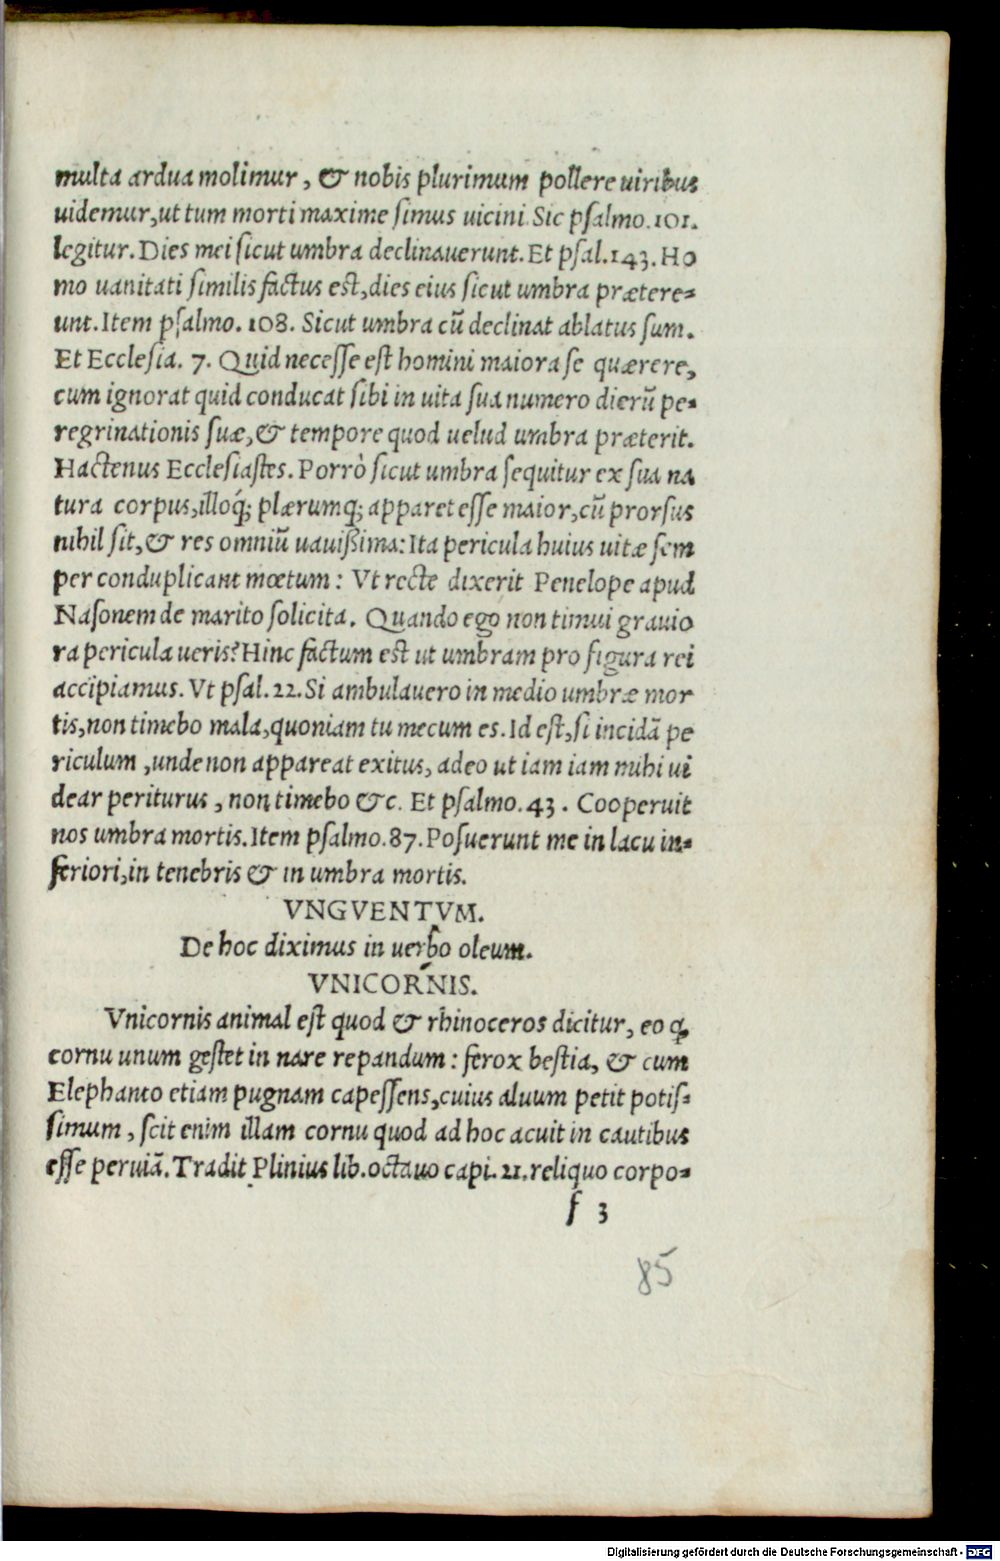 multa ardua molimur, & nobis plurimum pollere uiribus
uidemur, ut tum morti maxime simus uicini. Sic psalmo. 101.
legitur. Dies mei sicut umbra declinauerunt. Et psal. 143. Ho
mo uanitati similis factus est, dies eius sicut umbra prætere-
unt. Item psalmo. 108. Sicut umbra cū declinat ablatus sum.
Et Ecclesia. 7. Quid necesse est homini maiora se quærere,
cum ignorat quid conducat sibi in uita sua numero dierū pe-
regrinationis suæ, & tempore quod uelud umbra præterit.
Hactenus Ecclesiastes. Porrò sicut umbra sequitur ex sua na
tura corpus, illoq́; plærumq; apparet esse maior, cū prorsus
nihil sit, & res omniū uauißima: Ita pericula huius uitæ sem
per conduplicant mœtum: Vt recte dixerit Penelope apud
Nasonem de marito solicita. Quando ego non timui grauio
ra pericula ueris? Hinc factum est ut umbram pro figura rei
accipiamus. Vt psal. 22. Si ambulauero in medio umbræ mor
tis, non timebo mala, quoniam tu mecum es. Id est, si incidā pe
riculum, unde non appareat exitus, adeo ut iam iam mihi ui
dear periturus, non timebo &c. Et psalmo. 43. Cooperuit
nos umbra mortis. Item psalmo. 87. Posuerunt me in lacu in-
feriori, in tenebris & in umbra mortis.
VNGVENTVM.
De hoc diximus in uerbo oleum.
VNICORNIS.
Vnicornis animal est quod & rhinoceros dicitur, eo ꝙ
cornu unum gestet in nare repandum: ferox bestia, & cum
Elephanto etiam pugnam capessens, cuius aluum petit potis-
simum, scit enim illam cornu quod ad hoc acuit in cautibus
esse peruiā. Tradit Plinius lib. octauo capi. 21. reliquo corpo-
f 3
85
Digitalisierung gefördert durch die Deutsche Forschungsgemeinschaft - DFG